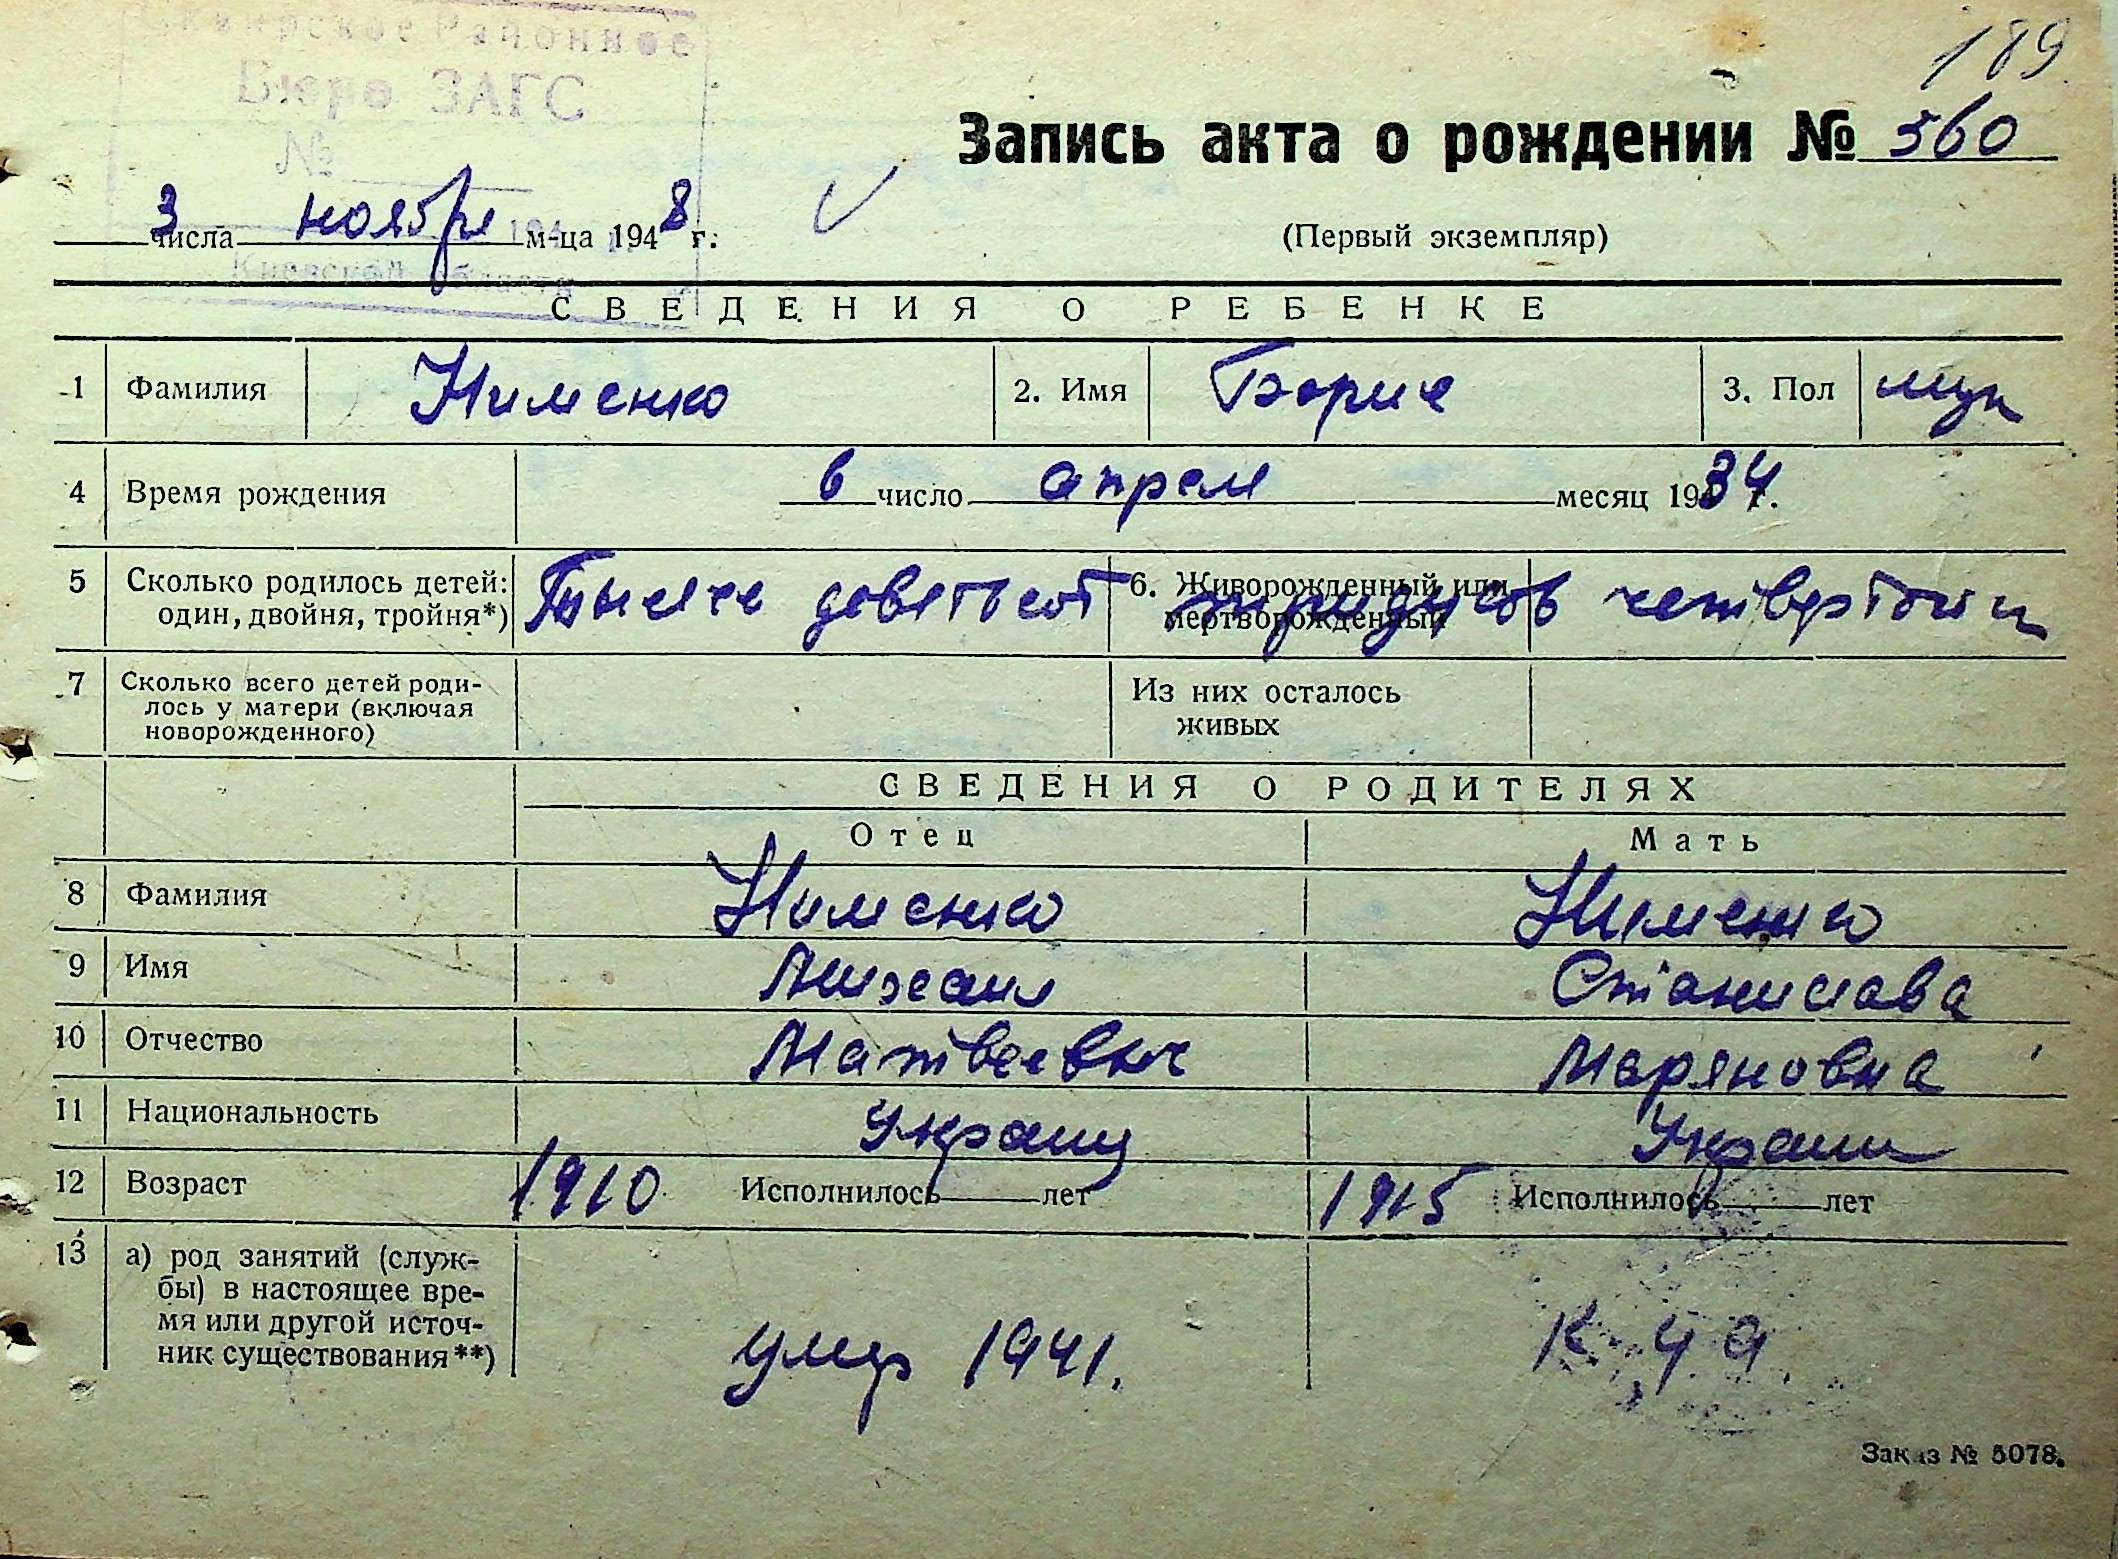 189
Районное
Бюро ЗАГС
№
Запись акта о рождении № 560
3 числа ноября м-ца 1948 г.
(Первый экземпляр)
Киевской области
СВЕДЕНИЯ О РЕБЕНКЕ
1 Фамилия Нименко 2. Имя Борис 3. Пол муж
4 Время рождения 6 число апреля месяц 1934 г.
5 Сколько родилось детей: один, двойня, тройня*) 6. Живорожденный или мертворожденный
Тысяча девятьсот тридцать четвертого
7 Сколько всего детей роди-
лось у матери (включая
новорожденного)
Из них осталось
живых
СВЕДЕНИЯ О РОДИТЕЛЯХ
Отец Мать
8 Фамилия Нименко Нименко
9 Имя Михаил Станислава
10 Отчество Матвеевич Маряновна
11 Национальность Украиц Украин
12 Возраст 1910 Исполнилось лет 1915 Исполнилось лет
13 а) род занятий (служ-
бы) в настоящее вре-
мя или другой источ-
ник существования**)
умер 1941.
Заказ № 5078.